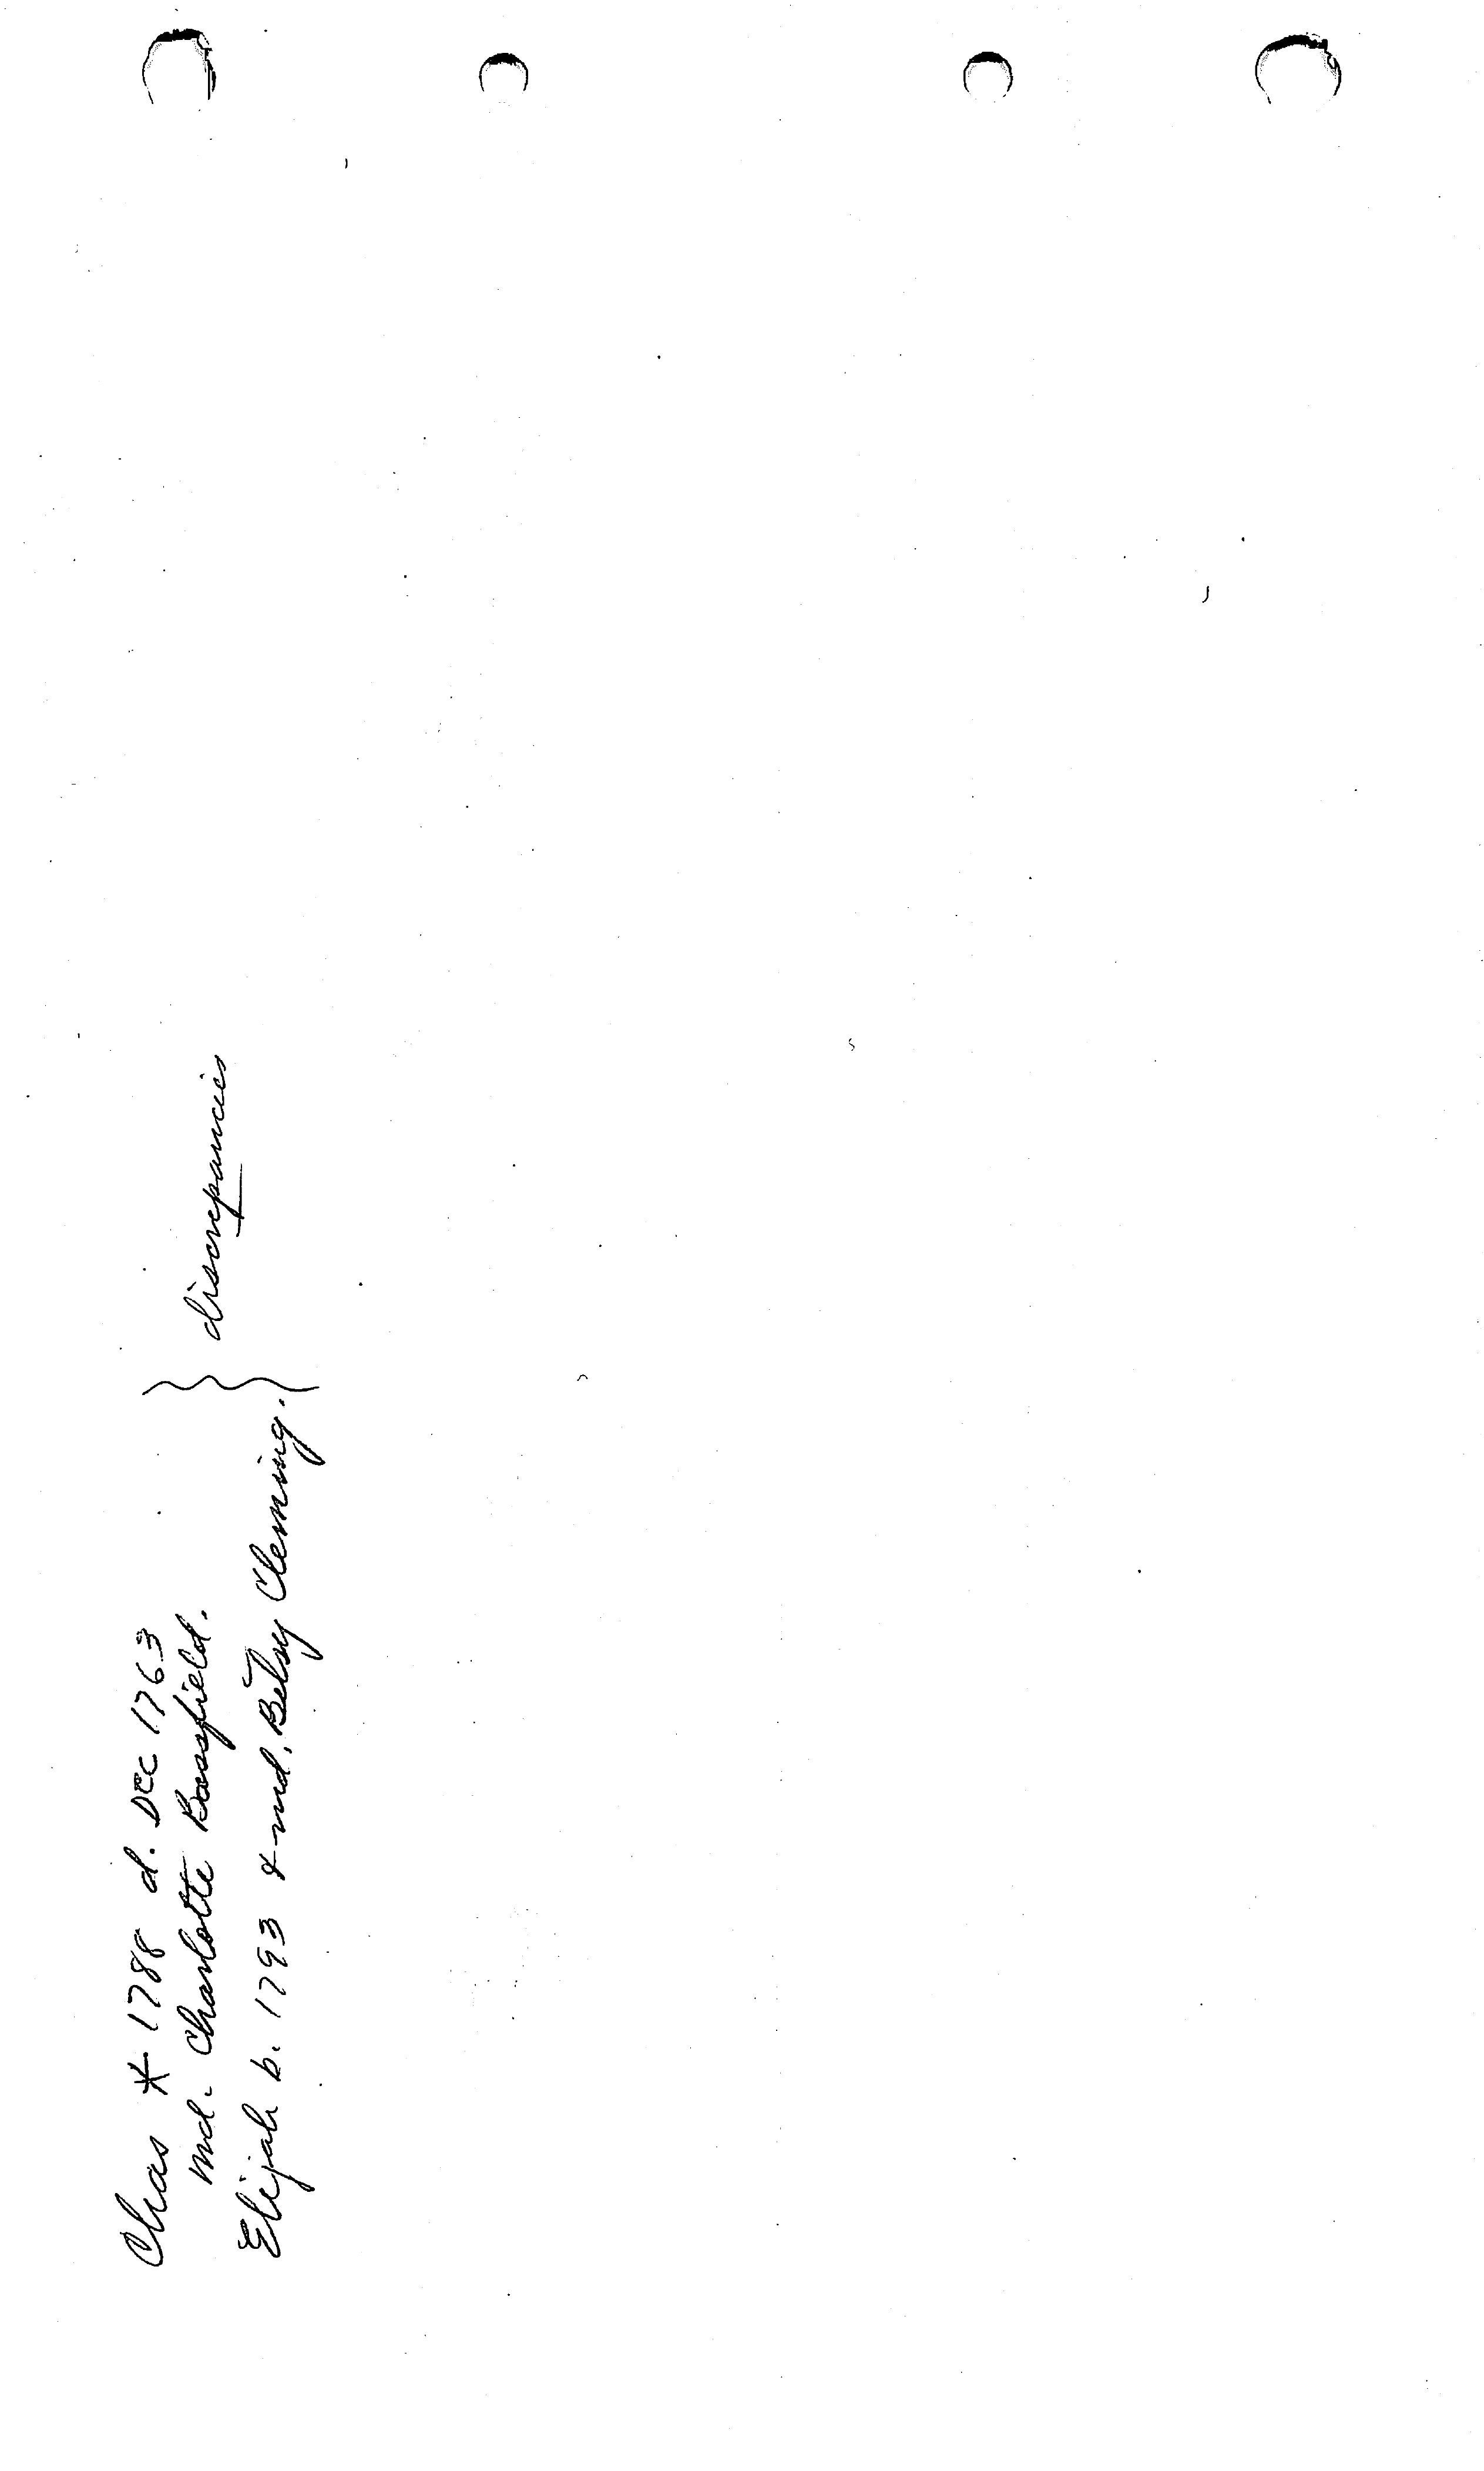 Chas * 1788 d. Dec 1763
md. Charlotte Bassfield.
Elijah b. 1793 & md. Betsy Cleming.
discrepancies